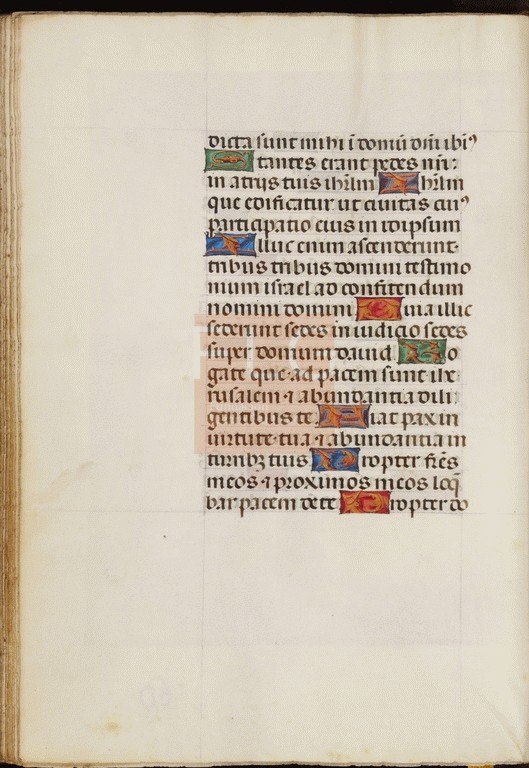 dicta sunt mihi ī domū dn̄i ibim⁹
Stantes erant pedes nr̄i:
in atrijs tuis ihrl̄m Ihrl̄m
que edificatur ut ciuitas cui⁹
participatio eius in idipsum
Illuc enim ascenderunt
tribus tribus domini testimo
nium israel ad confitendum
nomini domini Quia illic
sederunt sedes in iudicio sedes
super domum dauid Ro
gate que ad pacem sunt ihe
rusalem ⁊ abundantia dili
gentibus te Fiat pax in
uirtute tua ⁊ abundantia in
turribꝫ tuis Propter fr̄es
meos ⁊ proximos meos loq̄
bar pacem de te Propter do